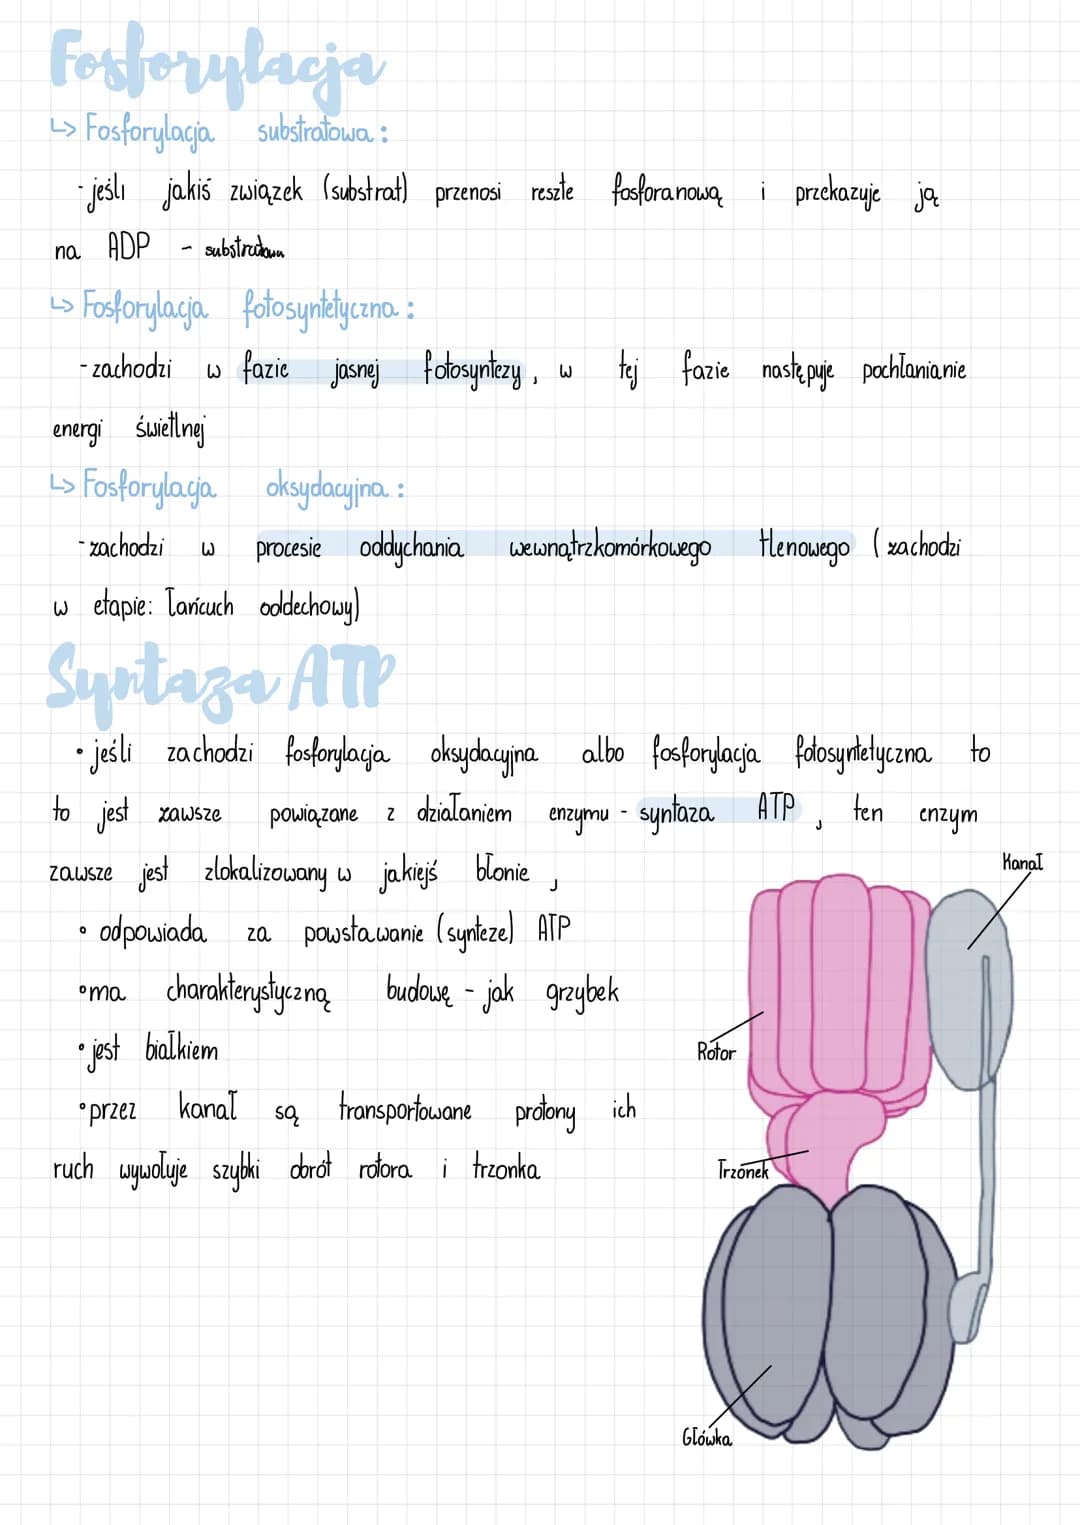 Fosforylacja
↳ Fosforylacja substratowa:
- jeśli jakiś związek (substrat) przenosi reszte fosforanową i przekazuje ją
na ADP - substratowa
↳ Fosforylacja fotosyntetyczna:
- zachodzi w fazie jasnej fotosyntezy, w tej fazie następuje pochłanianie
energi świetlnej
↳ Fosforylacja oksydacyjna:
- zachodzi w procesie oddychania wewnątrzkomórkowego tlenowego (zachodzi
w etapie: łańcuch oddechowy)
Syntaza ATP
• jeśli zachodzi fosforylacja oksydacyjna albo fosforylacja fotosyntetyczna to
to jest zawsze powiązane z działaniem enzymu - syntaza ATP, ten enzym
zawsze jest zlokalizowany w jakiejś błonie,
• odpowiada za powstawanie (synteze) ATP
• ma charakterystyczną budowę - jak grzybek
• jest białkiem
• przez kanał są transportowane protony ich
ruch wywołuje szybki obrót rotora i trzonka
Kanał
Rotor
Trzonek
Główka